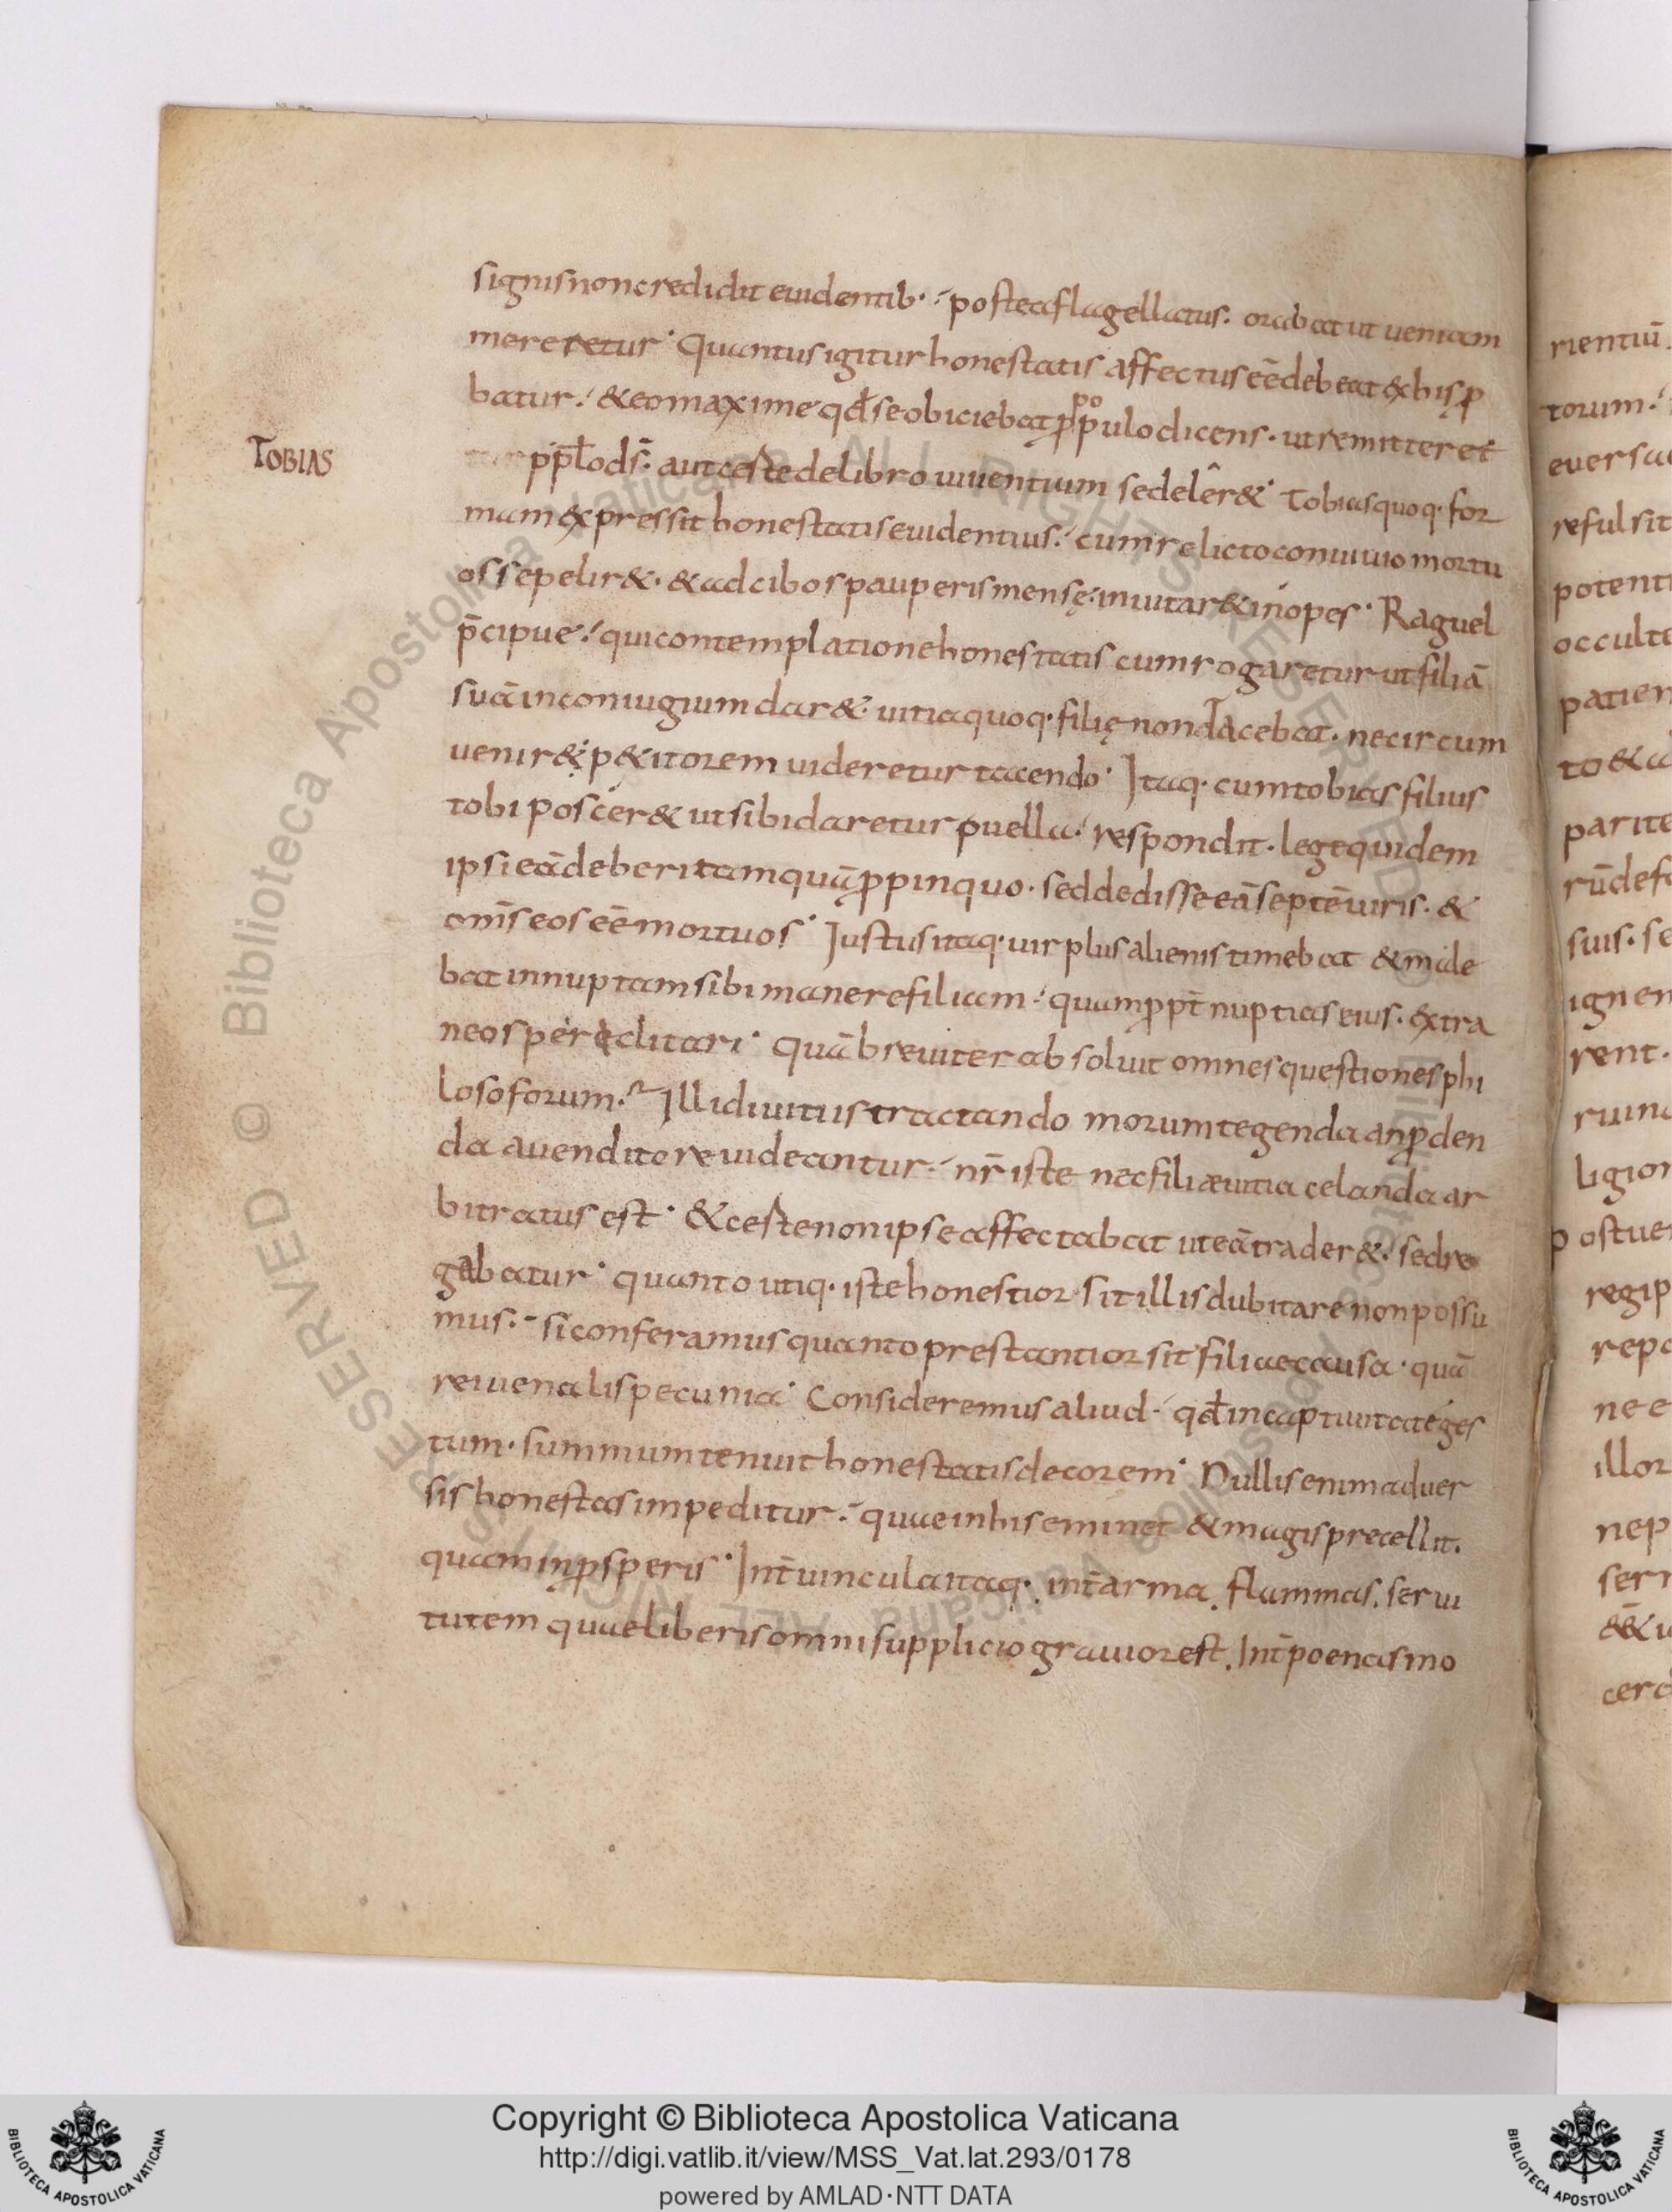 TOBIAS
signis non credidit euidentib· postea flagellatus· orabat ut ueniam
mereretur· Quantus igitur honestatis affectus eē debeat & his ꝓ
batur· & eo maxime qđ se obiciebat ꝓ popupulo dicens· ut remitteret
ppɫo ds̄· aut certe de libro uiuentium se deler&· Tobias quoq· for
mam expressit honestatis euidentius· cum relicto conuiuio mortu
os sepelir&· & ad cibos pauperis mensę· inuitar& inopes· Raguel
p̄cipue· qui contemplatione honestatis cum rogaretur ut filiā
suā in coniugium dar&· uitia quoq· filię non tacebat· ne circum
uenir& p&itorem uideretur tacendo· Itaq· cum tobias filius
tobi poscer& ut sibi daretur puella· respondit· lege quidem
ipsi eā deberi tamquā ꝓpinquo· sed dedisse eā septē uiris· &
om̄s eos eē mortuos· Iustus itaq· uir plus alienis timebat & male
bat innuptam sibi manere filiam· quam ꝓpt̄ nuptias eius· extra
neos pereclitari· quā breuiter absoluit omnes questiones phi
losoforum· Illi di uitiis tractando morum tegenda an ꝓden
da a uenditore uideantur· nr̄ iste nec filiæ uitia celanda ar
bitratus est· & certe non ipse affectabat ut eā trader&· sed ro
gabatur· quanto utiq· iste honestior sit illis dubitare non possu
mus· si conferamus quanto prestantior sit filiae causa· quā
rei uenalis pecunia· Consideremus aliud· qđ in captiuitate ges
tum· summum tenuit honestatis decorem· Nullis enim aduer
sis honestas impeditur· quae in his eminet & magis precellit·
quam in ꝓsperis· Int̄ uincula itaq· int̄ arma· flammas· serui
tutem quae liberis omni supplicio grauior est· Int̄ poenas mo
rientiū
torum·
euersa
refulsit
potenti
occulte
patien
to & a
parite
rū def
suis· se
ignen
rent·
ruina
ligion
postue
regi p
rep
ne e
illor
nep
ser
cer
© Biblioteca Apostolica Vaticana ALL RIGHTS RESERVED
Copyright © Biblioteca Apostolica Vaticana
http://digi.vatlib.it/view/MSS_Vat.lat.293/0178
powered by AMLAD·NTT DATA
BIBLIOTECA APOSTOLICA VATICANA
BIBLIOTECA APOSTOLICA VATICANA